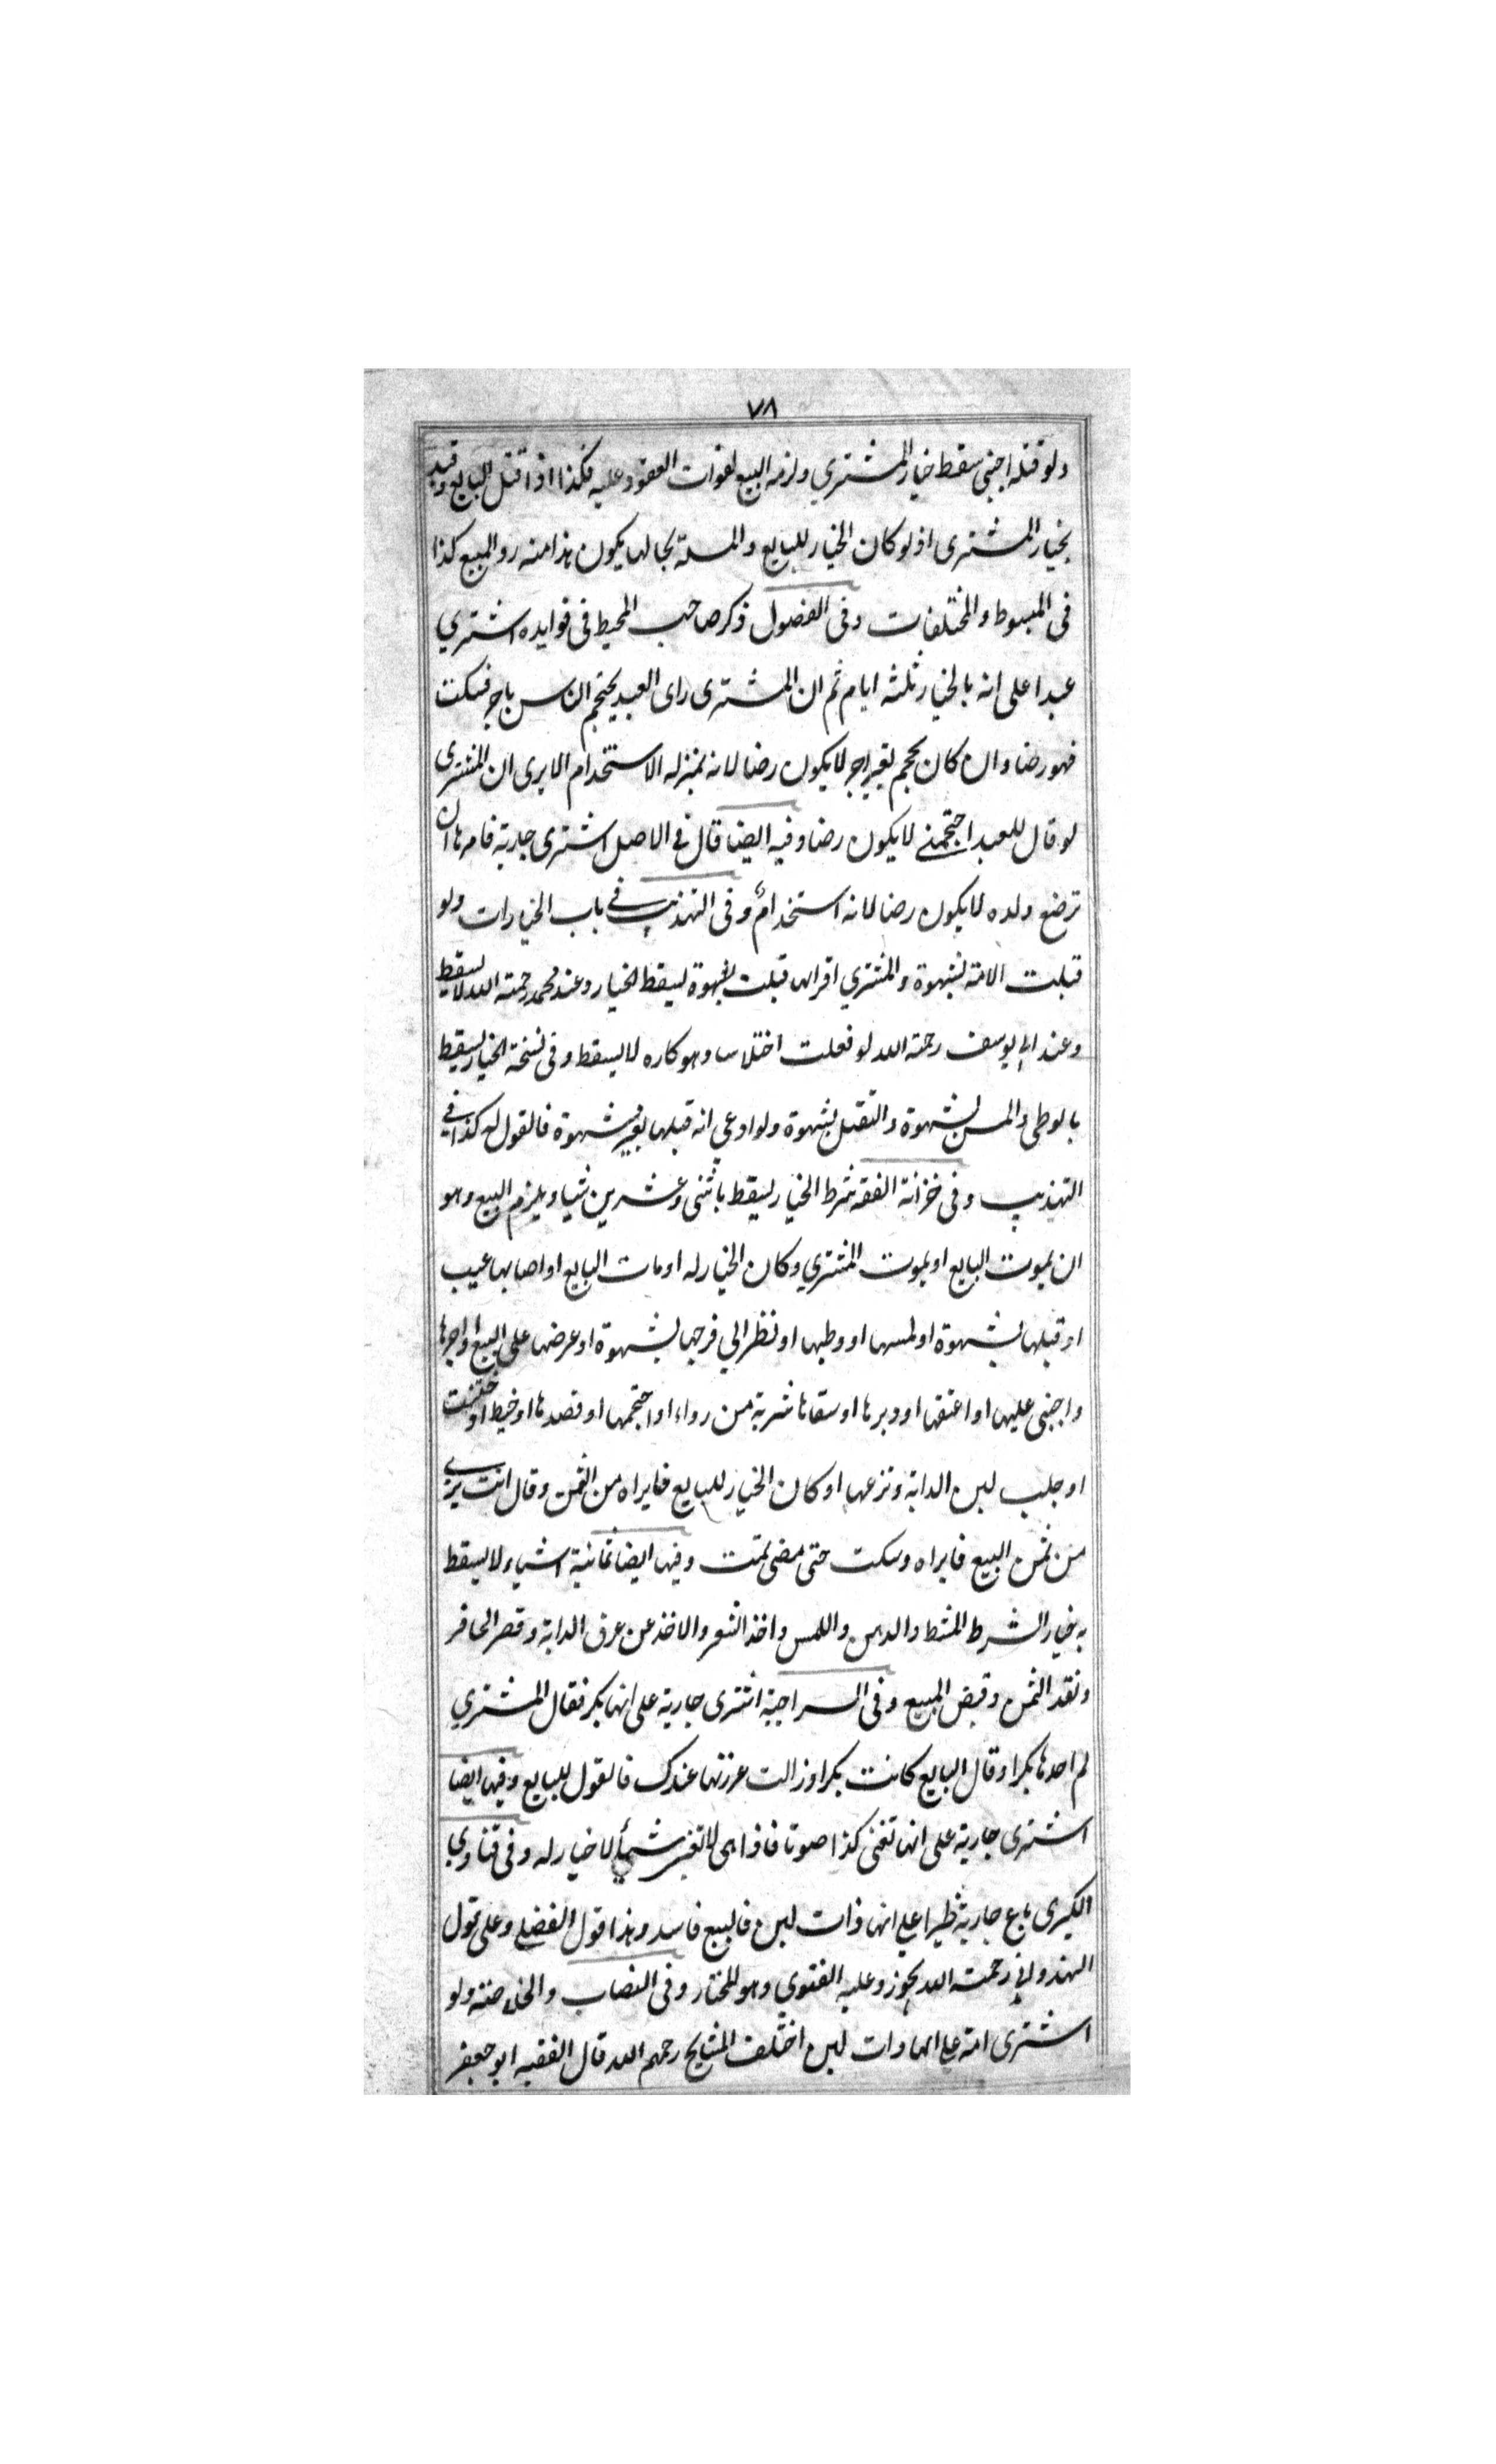 ٧٨
ولو قتله اجنبى سقط خيار المشتري ولزمه البيع لفوات المعقود عليه فكذا اذا قتل البايع وقيد
بخيار المشترى اذ لو كان الخيار للبايع والمسئلة بحالها يكون هذا منه رد المبيع كذا
فى المبسوط والمختلفات وفى الفصول ذكر صاحب المحيط فى فوايده اشتري
عبدا على انه بالخيار ثلثه ايام ثم ان المشترى راى العبد يحتجم الناس باجر فسكت
فهو رضا وان كان يحجم بغير اجر لا يكون رضا لانه بمنزله الاستخدام الا يرى ان المشترى
لو قال للعبد احتجمنے لا يكون رضا وفيه ايضا قال فے الاصل اشترى جارية فامرها ان
ترضع ولده لا يكون رضا لانه استخدام وفى التهذيب فے باب الخيارات ولو
قبلت الامة بشهوة والمشتري اقر انها قبلت بشهوة يسقط الخيار وعند محمد رحمته الله لا يسقط
وعند ابى يوسف رحمته الله لو فعلت اختلاسا وهو كاره لا يسقط وفى نسخة الخيار يسقط
بالوطى والمس بشهوة والتقبل بشهوة ولو ادعي انه قبلها بغير شهوة فالقول له كذا فے
التهذيب وفى خزانة الفقه شرط الخيار يسقط باثنى وعشرين شيا ويلزم البيع وهو
ان يموت البايع او يموت المشتري وكان الخيار له او مات البايع او اصابها عيب
او قبلها بشهوة او لمسها او وطيها او نظر الي فرجها بشهوة او عرضها على البيع او اجرها
واجنبى عليها او اعتقها او دبرها او سقاها شربة من دواء او احتجمها او فصدها او خيط او ختنت
او جلب لبن الدابة ونزعها او كان الخيار للبايع فابراه من الثمن وقال انت برئے
من ثمن البيع فابراه وسكت حتى مضى تمت وفيها ايضا ثمانية اشياء لا يسقط
به خيار الشرط المشط والدهن واللمس واخذ الشعر والاخذ عن عرق الدابة وقص الحافر
ونقد الثمن وقبض المبيع وفى السراجية اشترى جارية على انها بكر فقال المشتري
لم اجدها بكرا وقال البايع كانت بكرا وزالت عزرتها عندك فالقول للبايع وفيها ايضا
اشترى جارية على انها تغنى كذا صوتا فاذا هى لا تغنى شيأ لا خيار له وفى فتاوي
الكبرى باع جارية ظيرا علي انها ذات لبن فالبيع فاسد وهذا قول الفضلى وعلى قول
الهندوانى رحمته الله يجوز وعليه الفتوى وهو المختار وفى النصاب والخلاصته ولو
اشترى امة على انها ذات لبن اختلف المشايخ رحمهم الله قال الفقيه ابو جعفر